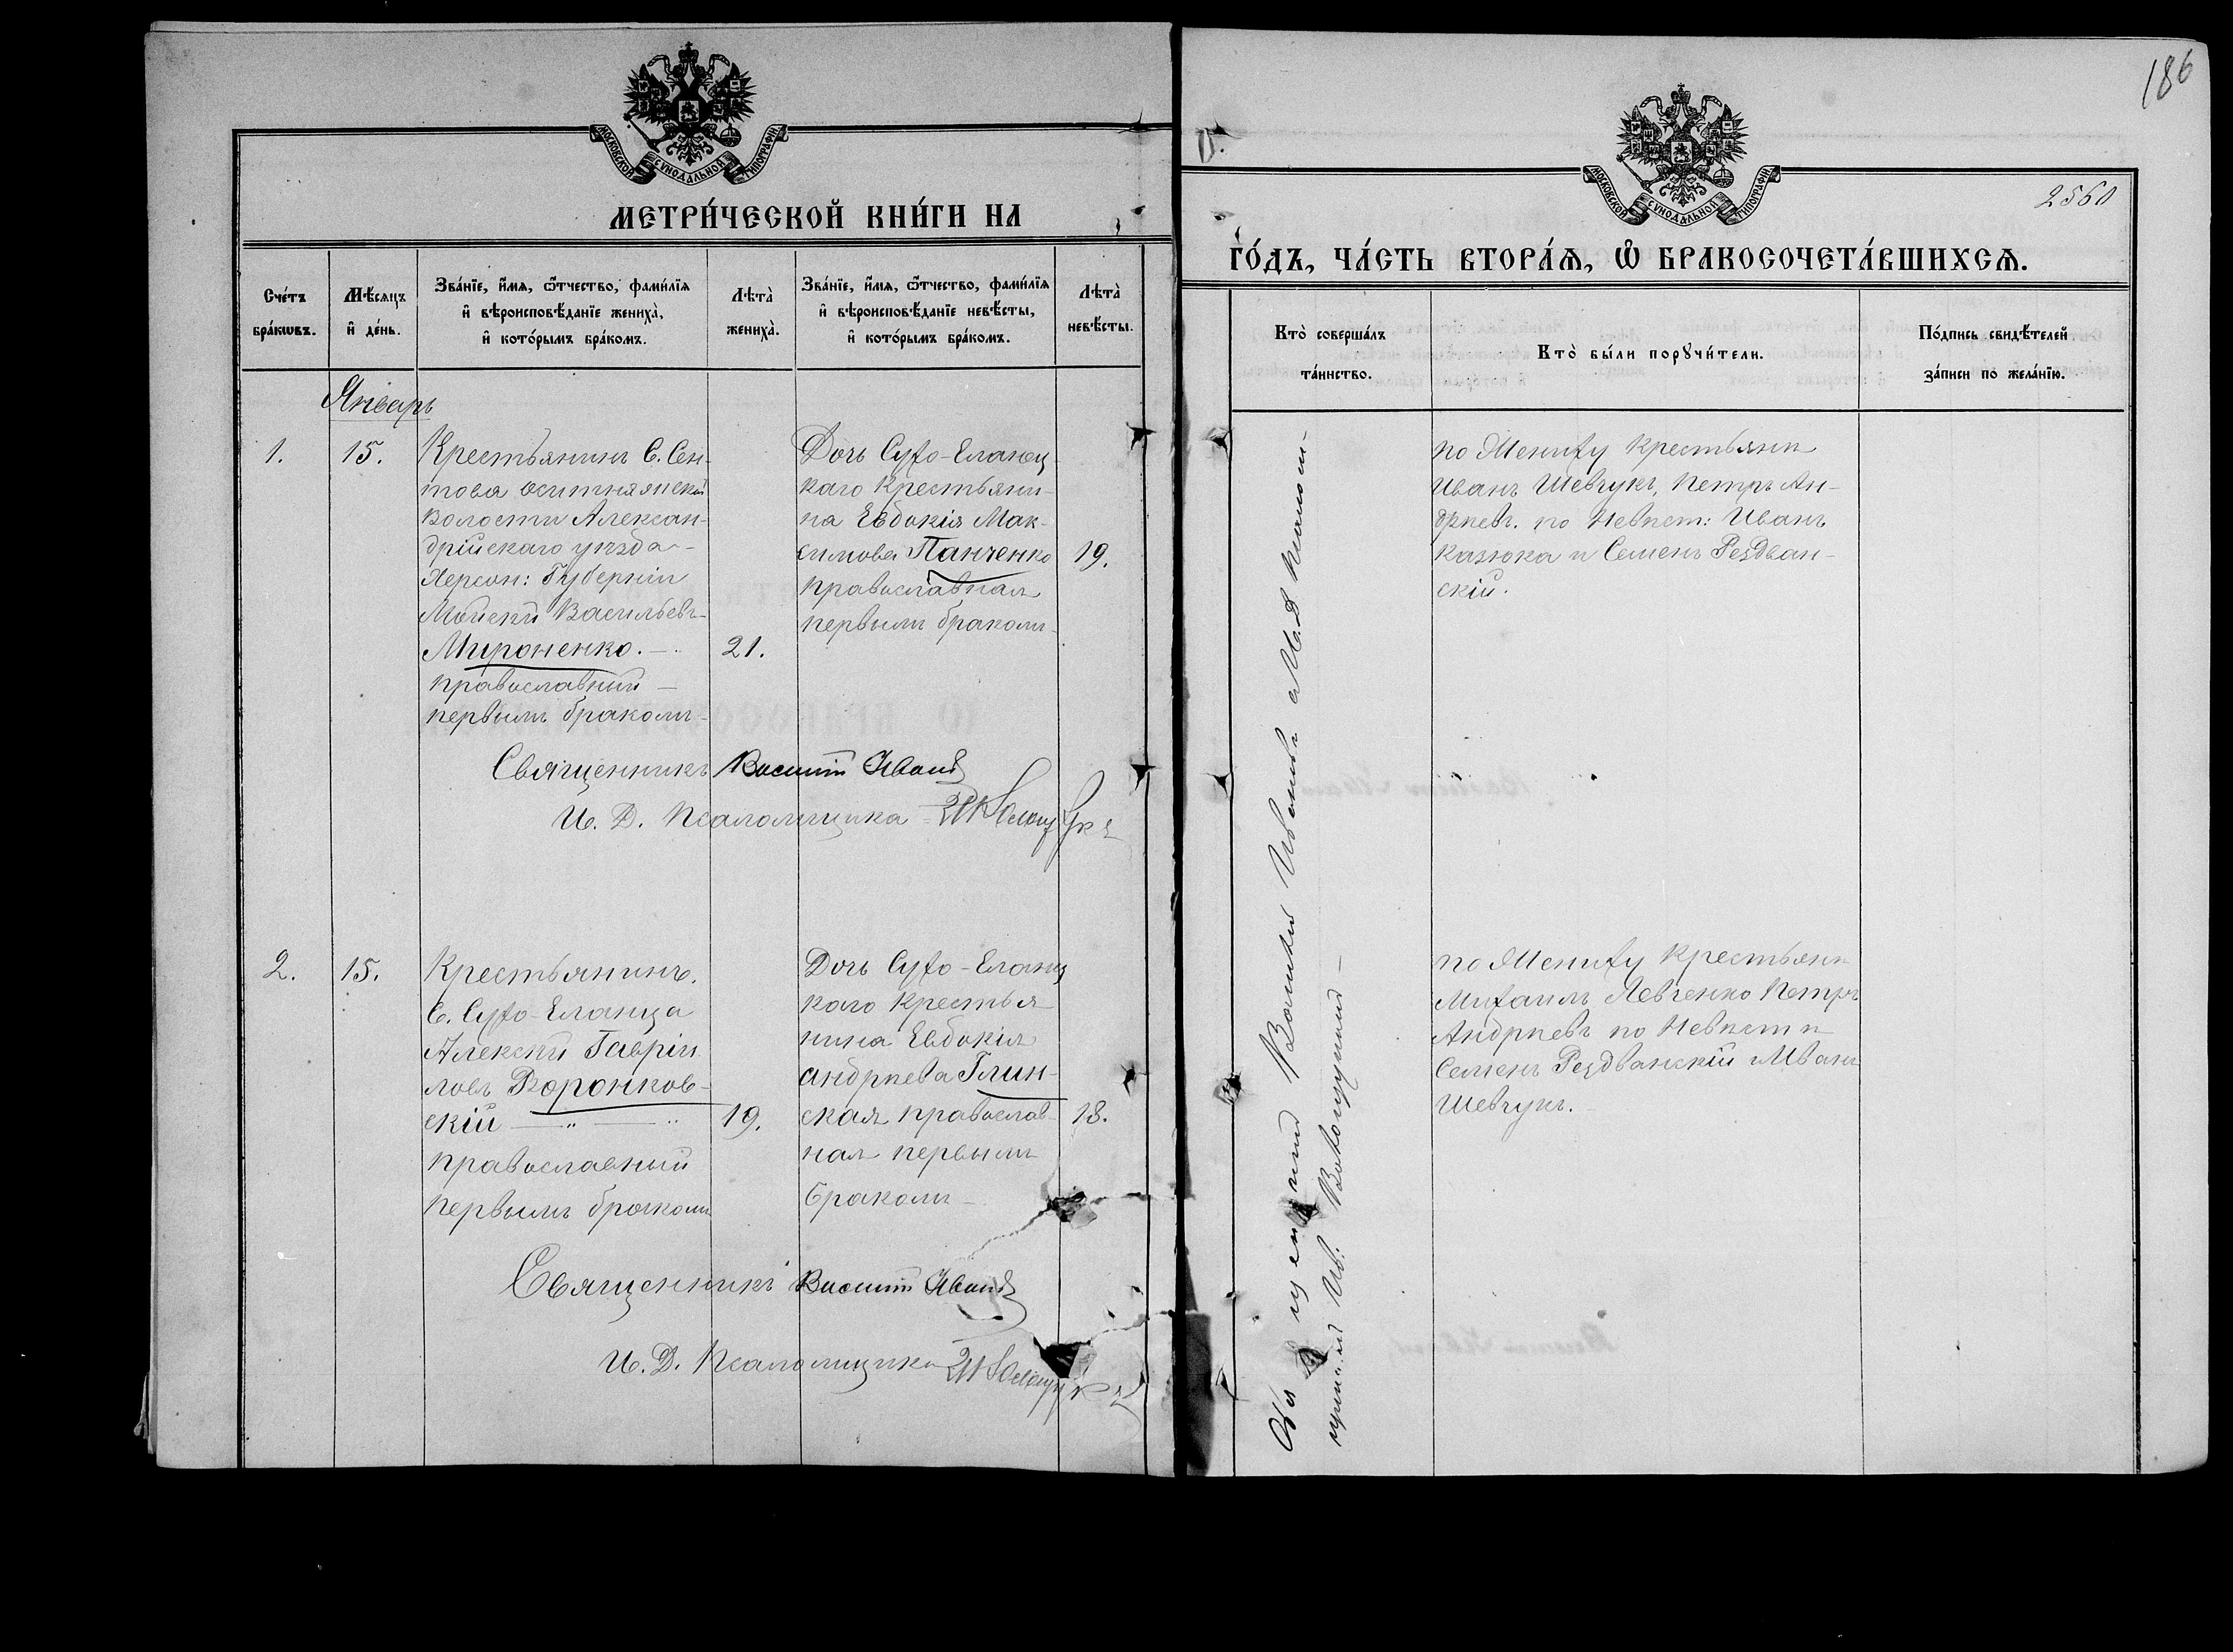 186
МОСКОВСКОЙ СѴНОДАЛЬНОЙ ТИПОГРАФІИ
МЕТРИ́ЧЕСКОЙ КНИ́ГИ НА
МОСКОВСКОЙ СѴНОДАЛЬНОЙ ТИПОГРАФІИ
2560
ГО́ДЪ, ЧА́СТЬ ВТОРА́Ѧ, Ѡ҆ БРАКОСОЧЕТА́ВШИХСѦ.
Сче́тъ
бра́кѡвъ.
Мѣ́сѧцъ
и҆ де́нь.
Зва́нїе, и҆́мѧ, ѻ҆́тчество, фами́лїѧ
и҆ вѣроисповѣ́данїе жениха̀,
и҆ кото́рымъ бра́комъ.
Лѣта̀
жениха̀.
Зва́нїе, и҆́мѧ, ѻ҆́тчество, фами́лїѧ
и҆ вѣроисповѣ́данїе невѣ́сты,
и҆ кото́рымъ бра́комъ.
Лѣта̀
невѣ́сты.
Кто̀ соверша́лъ
та́инство.
Кто̀ бы́ли порꙋчи́тели.
По́дпись свидѣ́телей
за́писи по жела́нїю.
Январь
1.
15.
Крестьянинъ С. Сен-
това
Волости Алексан-
дрійскаго уѣзда-
Херсон: Губерніи
Моисей Васильевъ-
Мироненко. -
православный -
первымъ бракомъ-
21.
Дочь Сухо-Еланец
каго Крестьяни-
на Евдокія Мак-
симова Панченко
православная
первымъ бракомъ-
19.
по Жениху крестьяни
Иванъ Шевчукъ, Петръ Ан-
дреевъ. по Невѣст: Иванъ
Казюка и Семенъ Рездван-
скій.
Священникъ Василій Иванов
И. Д. Псаломщика
2.
15.
Крестьянинъ.
С. Сухо-Еланца
Алексѣй Гаврій
ловъ Воронков-
скій
православный
первымъ бракомъ
19.
Дочь Сухо-Еланец
каго Крестья
нина Евдокія
андреева Глин-
ская православ-
ная первымъ
бракомъ-
18.
по Жениху крестьяни
Михаилъ Левченко Петръ
Андреевъ по Невѣсти
Семенъ Рездванскій Иванъ
Шевчукъ.
Священникъ Василій Иванов
И. Д. Псаломщика